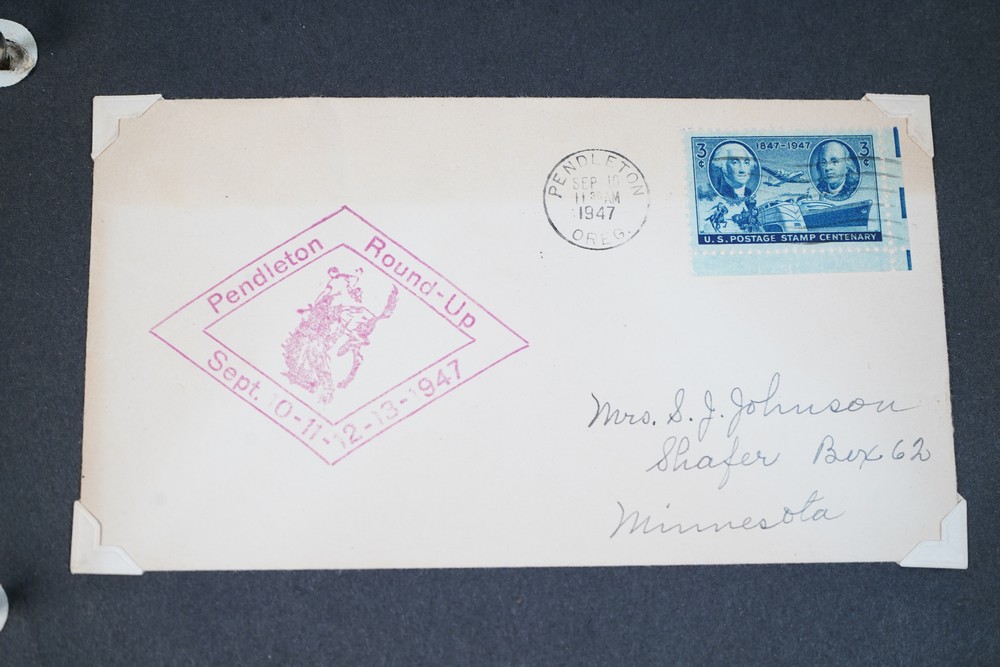 Pendleton Round-Up
Sept. 10-11-12-13-1947
PENDLETON
SEP 10
11 30 AM
1947
OREG.
3¢ 1847-1947 3¢
U.S. POSTAGE STAMP CENTENARY
Mrs. S. J. Johnson
Shafer Box 62
Minnesota